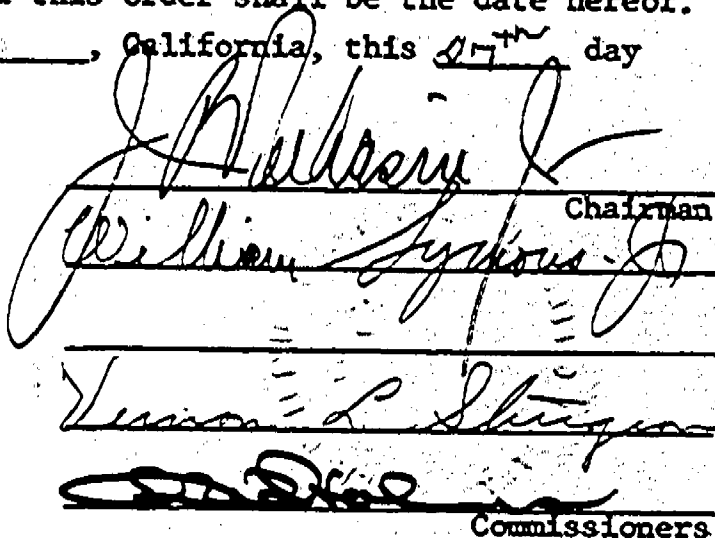 this order shall be the date hereof.
, California, this 27th day
J
Chairman
William Symons Jr
Vernon L Sturgeon
Commissioners